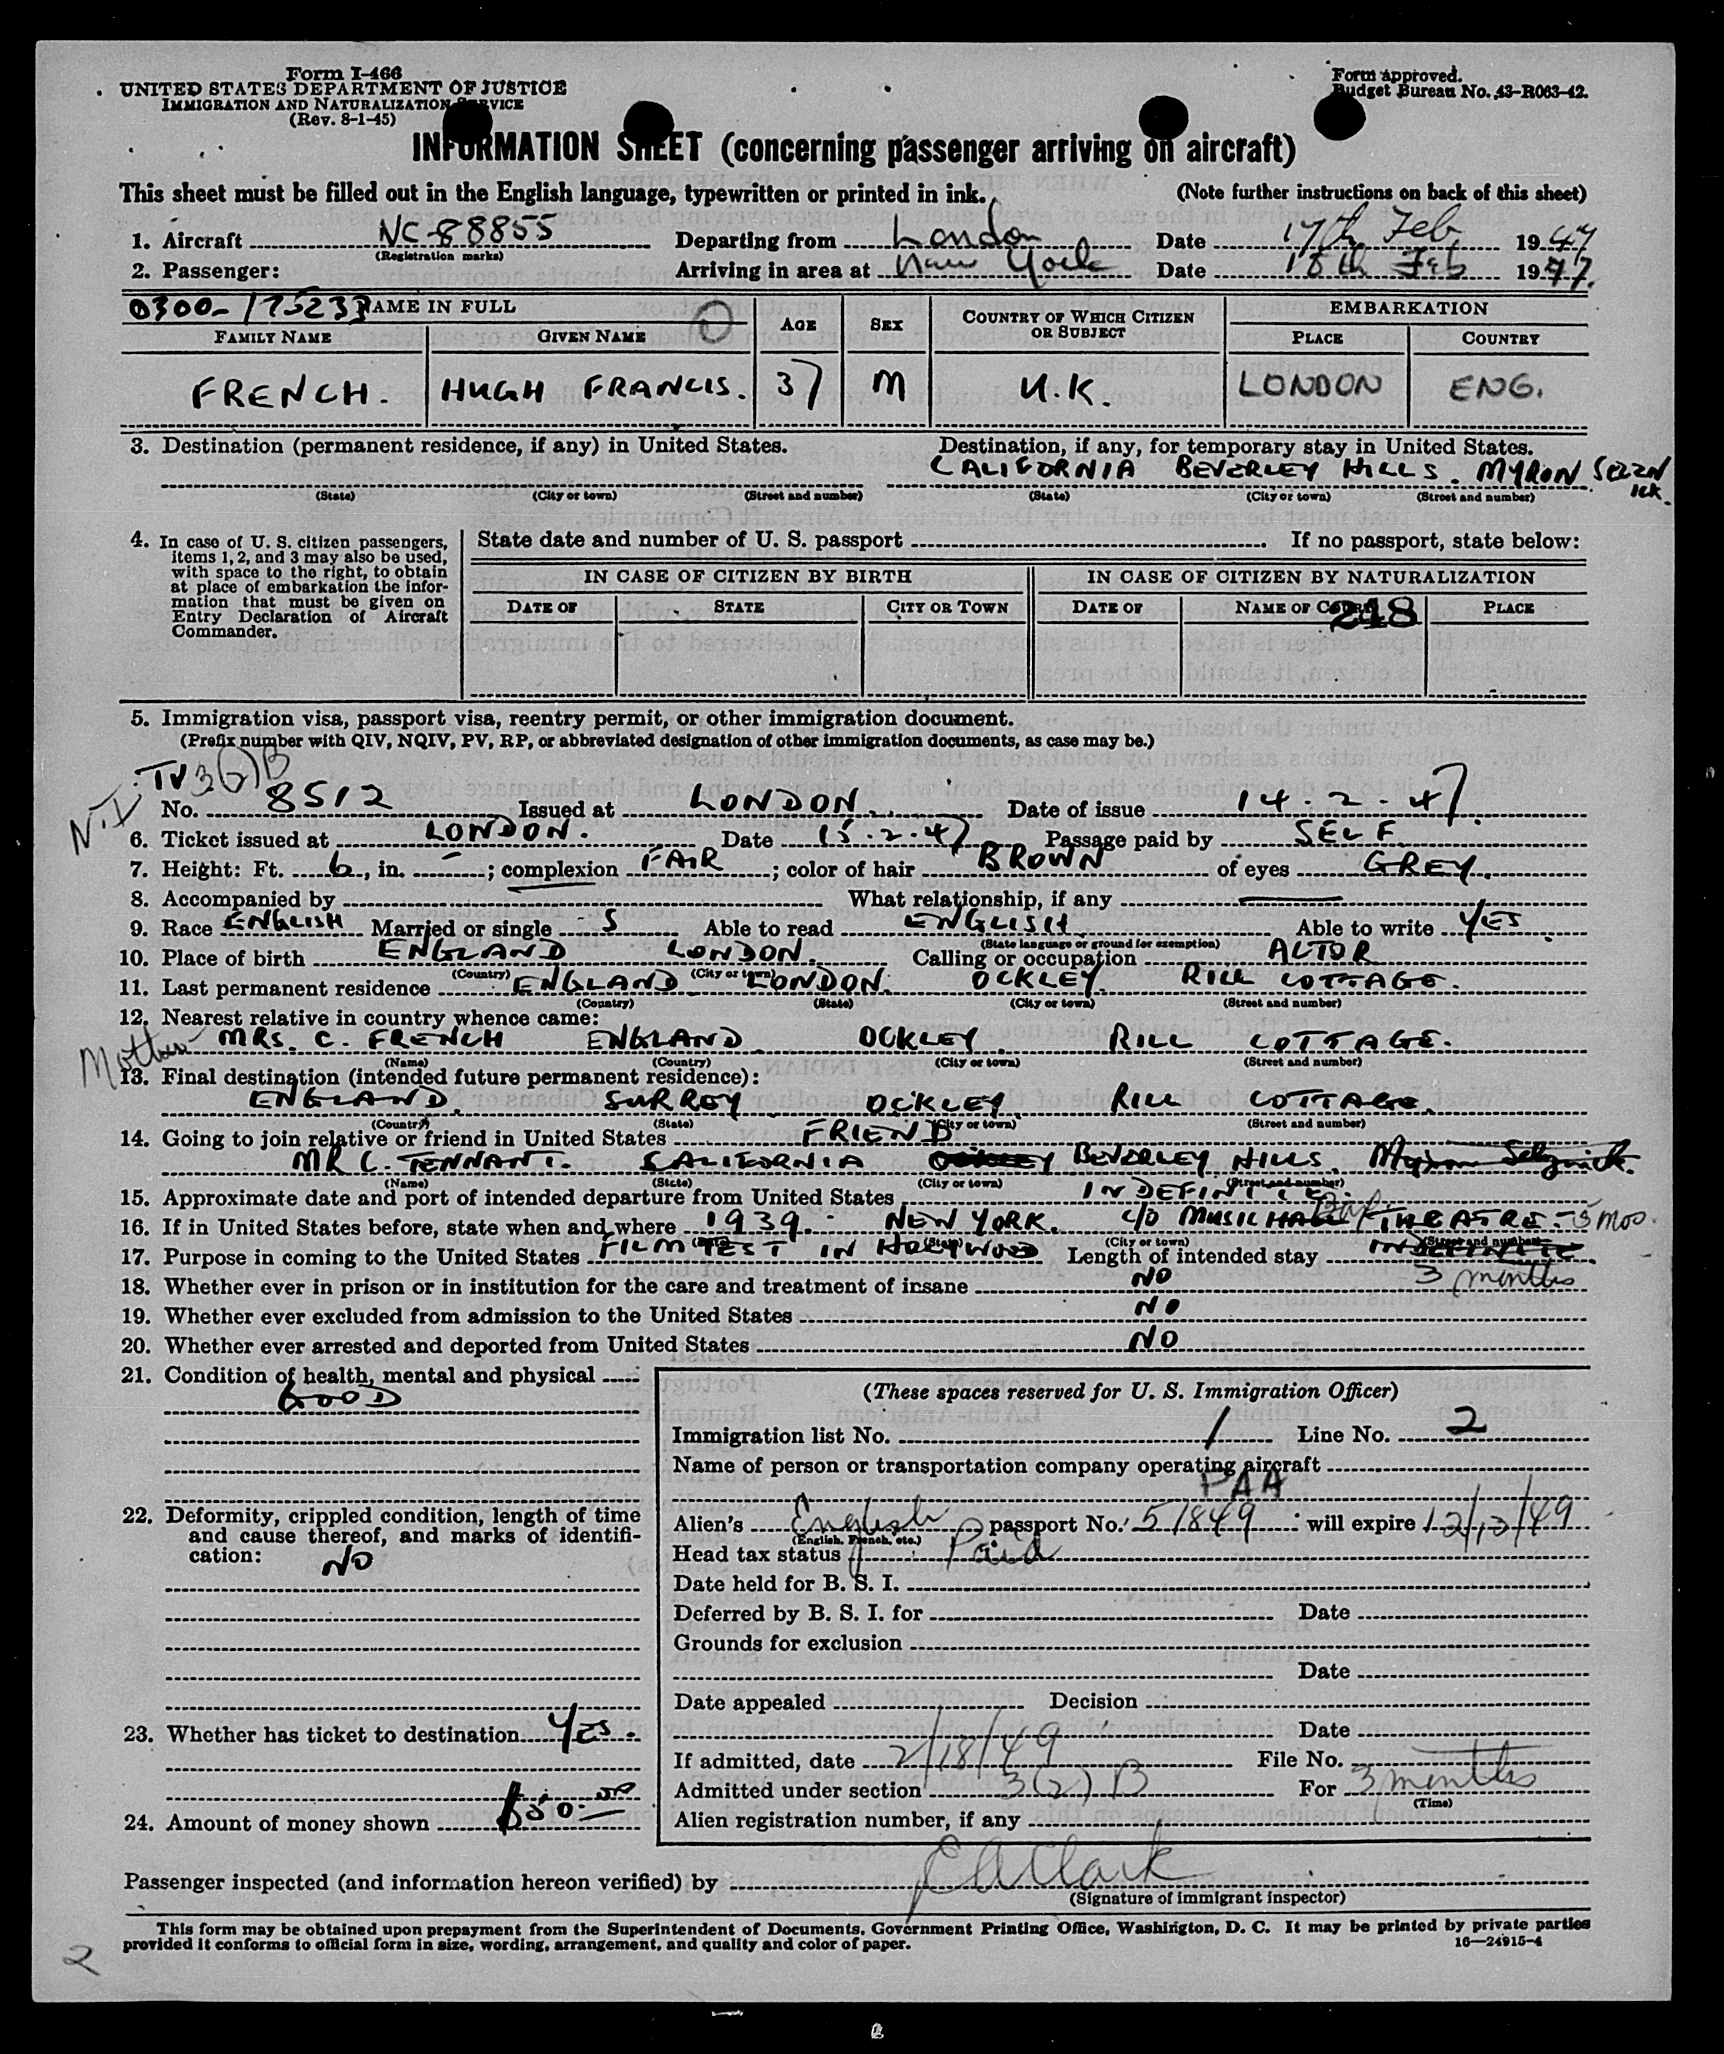 Form I-466
UNITED STATES DEPARTMENT OF JUSTICE
IMMIGRATION AND NATURALIZATION SERVICE
(Rev. 8-1-45)
Form approved.
Budget Bureau No. 43-R063-42.
INFORMATION SHEET (concerning passenger arriving on aircraft)
This sheet must be filled out in the English language, typewritten or printed in ink. (Note further instructions on back of this sheet)
1. Aircraft NC-88855 Departing from London Date 17th Feb 1947
(Registration marks)
2. Passenger: Arriving in area at New York Date 18th Feb 1947.
0300-175233 NAME IN FULL AGE SEX COUNTRY OF WHICH CITIZEN OR SUBJECT EMBARKATION
FAMILY NAME GIVEN NAME PLACE COUNTRY
FRENCH. HUGH FRANCIS. 37 M U.K. LONDON ENG.
3. Destination (permanent residence, if any) in United States. Destination, if any, for temporary stay in United States.
CALIFORNIA BEVERLEY HILLS. MYRON SELZNICK.
(State) (City or town) (Street and number) (State) (City or town) (Street and number)
4. In case of U. S. citizen passengers, items 1, 2, and 3 may also be used, with space to the right, to obtain at place of embarkation the information that must be given on Entry Declaration of Aircraft Commander.
State date and number of U. S. passport If no passport, state below:
IN CASE OF CITIZEN BY BIRTH IN CASE OF CITIZEN BY NATURALIZATION
DATE OF STATE CITY OR TOWN DATE OF NAME OF COURT PLACE
248
5. Immigration visa, passport visa, reentry permit, or other immigration document.
(Prefix number with QIV, NQIV, PV, RP, or abbreviated designation of other immigration documents, as case may be.)
TV 3(2)B
N.I.
No. 8512 Issued at LONDON. Date of issue 14.2.47.
6. Ticket issued at LONDON. Date 15.2.47 Passage paid by SELF
7. Height: Ft. 6, in. -; complexion FAIR; color of hair BROWN of eyes GREY.
8. Accompanied by What relationship, if any
9. Race ENGLISH Married or single S Able to read ENGLISH. Able to write YES.
(State language or ground for exemption)
10. Place of birth ENGLAND LONDON. Calling or occupation ACTOR
(Country) (City or town)
11. Last permanent residence ENGLAND LONDON. OCKLEY. RILL COTTAGE.
(Country) (State) (City or town) (Street and number)
12. Nearest relative in country whence came:
Mother MRS. C. FRENCH ENGLAND. OCKLEY. RILL COTTAGE.
(Name) (Country) (City or town) (Street and number)
13. Final destination (intended future permanent residence):
ENGLAND. SURREY. OCKLEY. RILL COTTAGE.
(Country) (State) (City or town) (Street and number)
14. Going to join relative or friend in United States FRIEND
MR C. TENNANT. CALIFORNIA OCKLEY BEVERLEY HILLS. Myron Selznick.
(Name) (State) (City or town) (Street and number)
15. Approximate date and port of intended departure from United States INDEFINITE.
16. If in United States before, state when and where 1939. NEW YORK. C/O MUSIC HALL THEATRE - 5 mos.
(State) (City or town) (Street and number)
17. Purpose in coming to the United States FILM TEST IN HOLLYWOOD Length of intended stay INDEFINITE
3 months
18. Whether ever in prison or in institution for the care and treatment of insane NO
19. Whether ever excluded from admission to the United States NO
20. Whether ever arrested and deported from United States NO
21. Condition of health, mental and physical
GOOD
22. Deformity, crippled condition, length of time and cause thereof, and marks of identification:
NO
23. Whether has ticket to destination YES.
24. Amount of money shown $50.00
(These spaces reserved for U. S. Immigration Officer)
Immigration list No. 1 Line No. 2
Name of person or transportation company operating aircraft
PAA
Alien's English passport No. 51849 will expire 12/12/49
(English, French, etc.)
Head tax status Paid
Date held for B. S. I.
Deferred by B. S. I. for Date
Grounds for exclusion
Date
Date appealed Decision
Date
If admitted, date 2/18/49 File No.
Admitted under section 3(2)B For 3 months
(Time)
Alien registration number, if any
Passenger inspected (and information hereon verified) by E A Clark
(Signature of immigrant inspector)
This form may be obtained upon prepayment from the Superintendent of Documents, Government Printing Office, Washington, D. C. It may be printed by private parties
provided it conforms to official form in size, wording, arrangement, and quality and color of paper. 16—24915-4
2